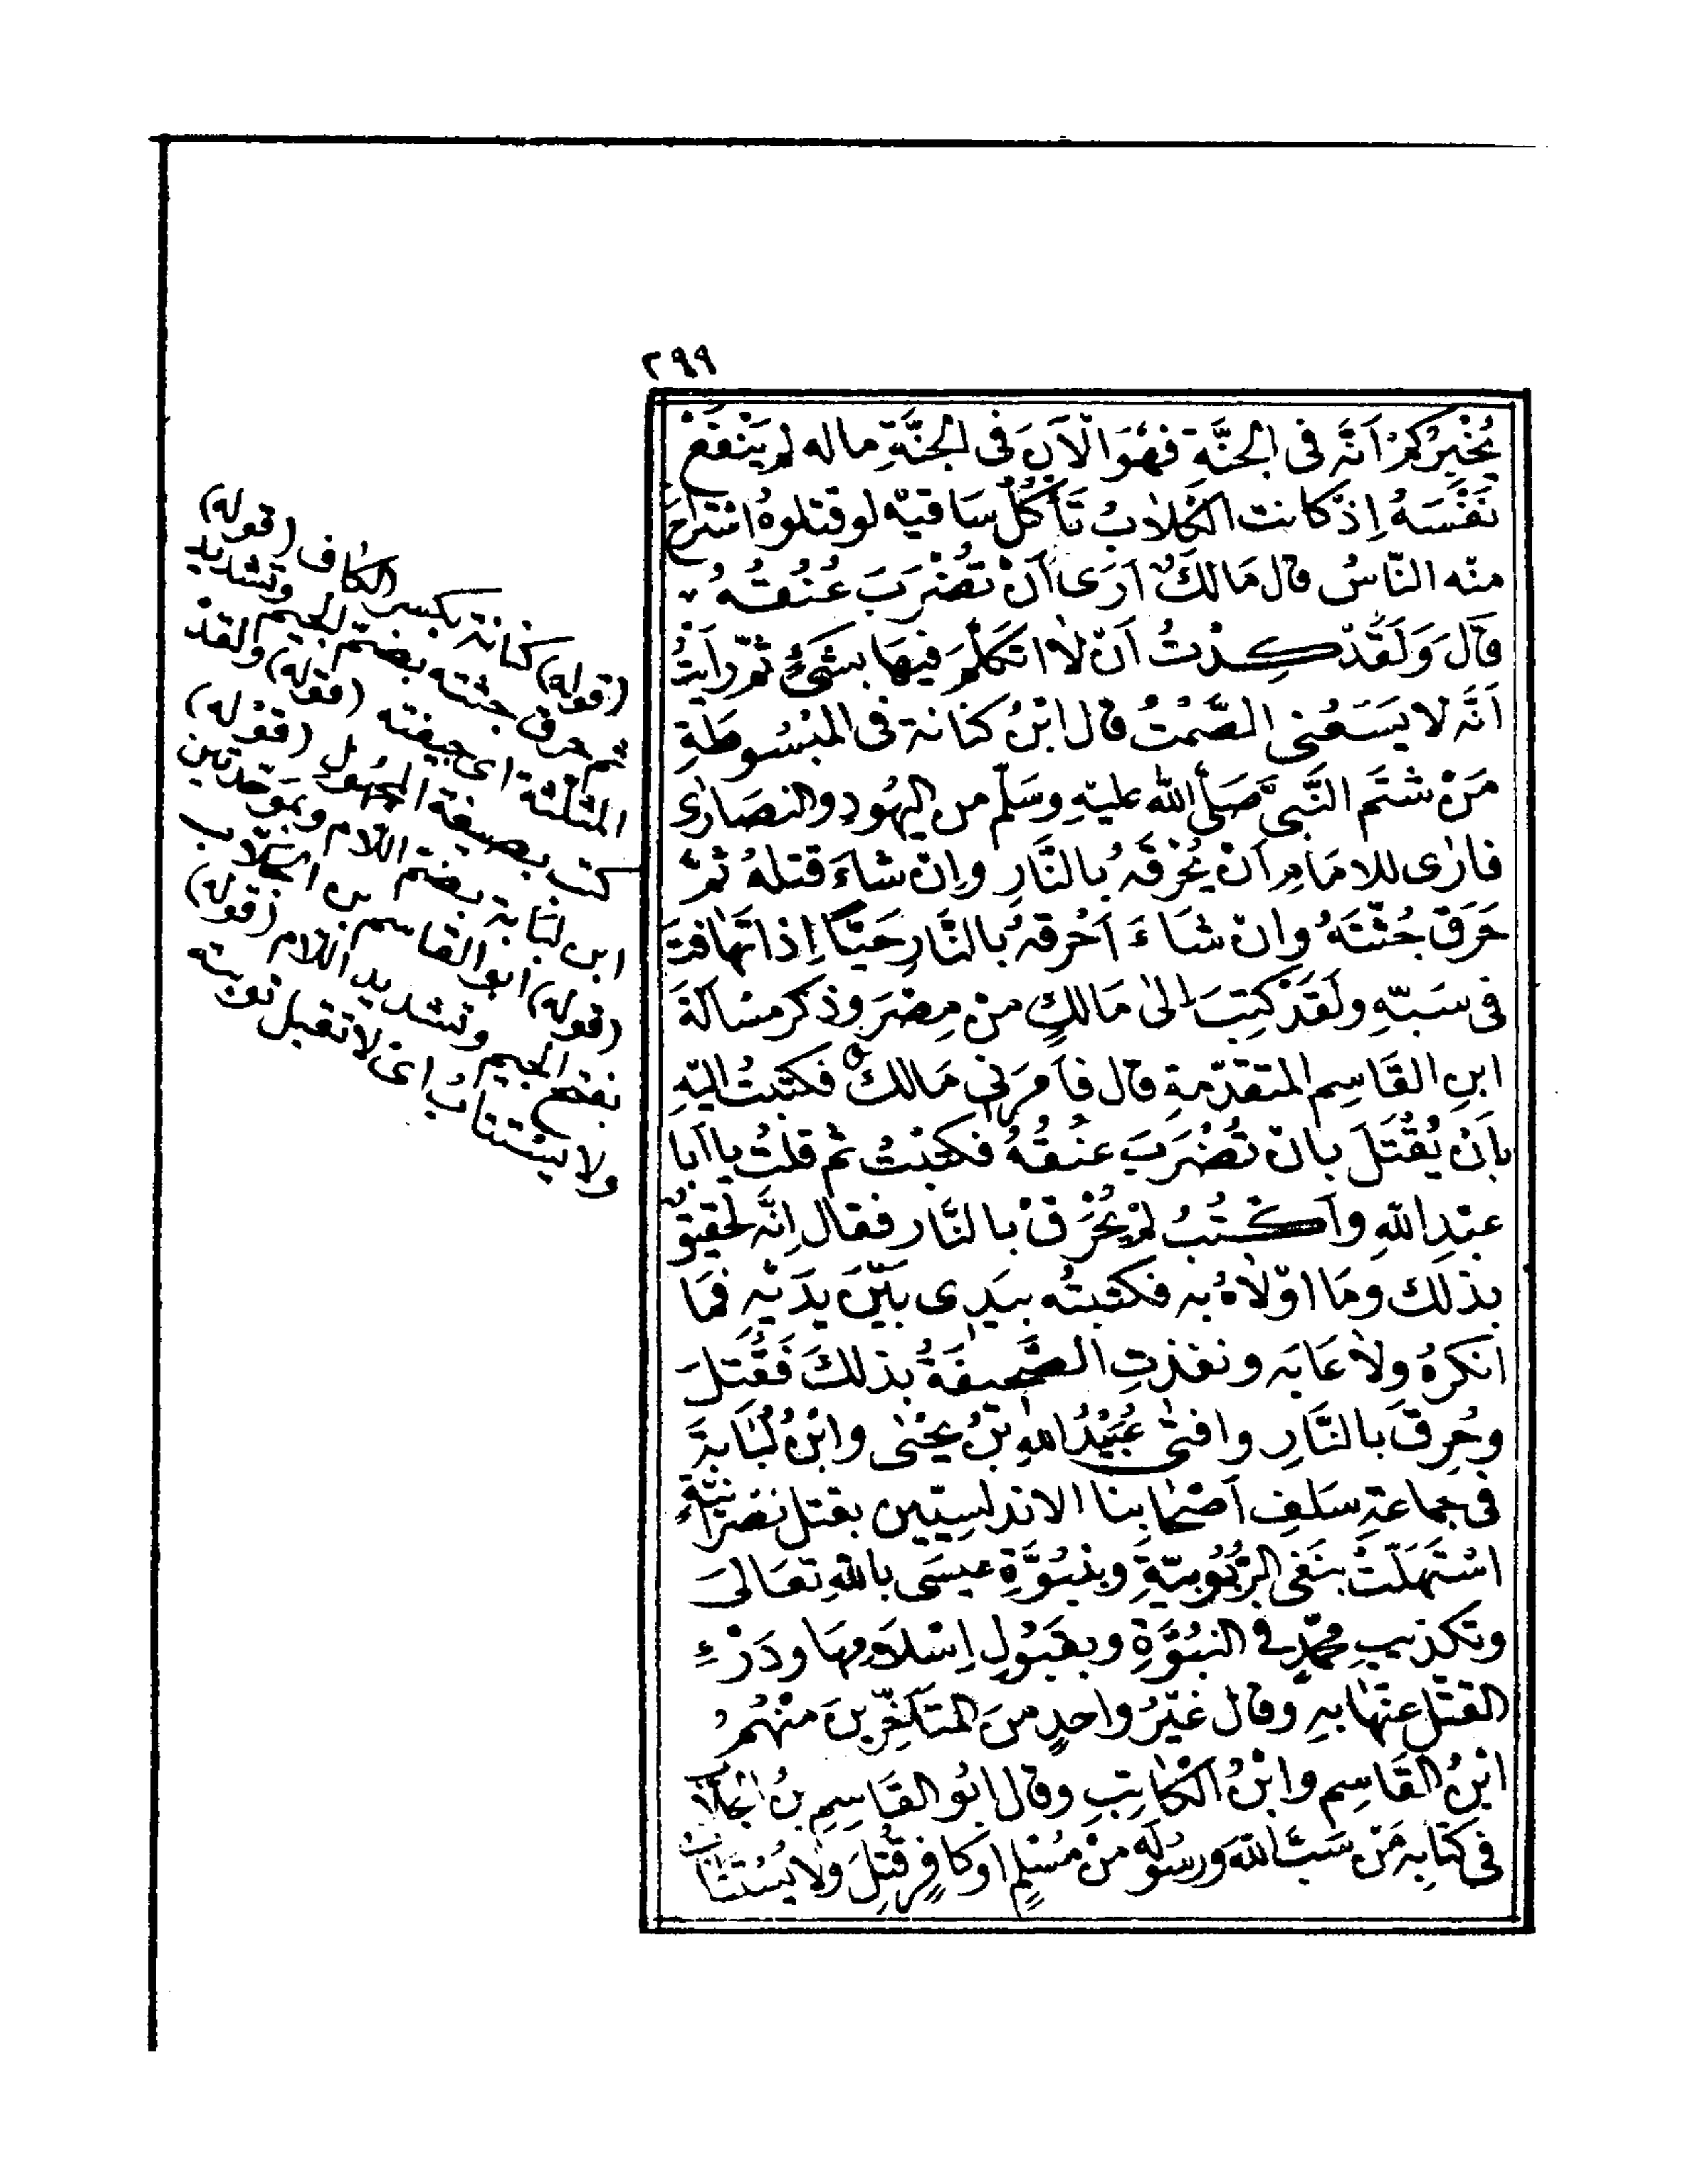 ٢٩٩
يُخْبِرُكُمْ اَنَّهُ فى الجنَّةِ فهُوَ الْآنَ فى الجنَّةِ ماله لم يَنْفَعْ
نَفْسَهُ اِذْ كانت الكِلابُ تَأْكُلُ سَاقيْه لو قتلوهُ اسْتراحَ
منْه النّاسُ قال مَالكٌ اَرَى اَنْ تُضْرَبَ عُنُقهُ
قالَ وَلَقَدْ كِدْتُ اَنْ لا اتَكَلَّمَ فيهَا بشَىْءٍ ثمّ رَاَيْتُ
اَنَّهُ لا يسَعُنى الصَّمْتُ قال ابْنُ كنَانة فى المَبْسُوطَةِ
مَنْ شتَم النَّبىَّ صَلى الله عليْهِ وسَلّم من اليهُودِ والنصَارٰى
فارٰى للامَامِ اَنْ يُحْرقَهُ بالنَّارِ وانْ شاءَ قتلهُ ثمّ
حَرَقَ جُثّتَهُ وانْ شَاءَ اَحْرقهُ بالنَّارِ حَيًّا اِذا تهَافتَ
فى سَبّهِ ولقَدْ كُتِبَ الىٰ مَالكٍ منْ مِصْرَ وذكر مسْالةَ
ابنِ القَاسِم المتقدّمةِ قال فاَمرَنى مَالكٌ فكَتبْتُ اليْهِ
باَنْ يُقْتَلَ بانْ تُضْرَبَ عنُقهُ فكتبْتُ ثم قلتُ يا اَبا
عبْدِ اللهِ واَكتُبُ ثمّ يُحْرَقْ بالنَّار فقال اِنَّهُ لحَقيقٌ
بذلك ومَا اَوْلاهُ به فكتبتُه بيَدِى بَيْنَ يدَيْه فَمَا
انكرَهُ ولا عَابَه ونفذتِ الصَّحيفَةُ بذلكَ فَقُتِلَ
وحُرِقَ بالنَّارِ وافتىٰ عُبَيْدُ اللهِ بْنُ يحْيٰى وابْنُ لُبَابةَ
فى جماعةِ سَلفِ اَصْحَابنا الاندلسِيّين بقتل نصْرَانيَّةٍ
اسْتَهَلَّتْ بنَفْى الرُّبُوبيّةِ وبنُبُوَّةِ عيسَى بالله تعَالىَ
وتكذيبِ محمّدٍ فى النبُوَّةِ وبقبُولِ اِسْلامِهَا ودَرْءِ
القتْلِ عنْهَا بهِ وقال غيْرُ واحدٍ منَ المتَاَخِّرِينَ منْهُمُ
ابْنُ القَاسِم وابْنُ الكاتِبِ وقال ابُو القَاسِمِ بنُ الجَلّاب
فى كتابِه مَنْ سَبَّ اللهَ وَرسُولَه منْ مُسْلمٍ اوْ كافرٍ قُتِلَ ولا يُسْتَتَابُ
(قوله) كنانة بكسر الكاف (قوله)
ثم حرق جثته بضمّ الجيم وتشديد
المثلثة اى جيفته (قوله) ولقدْ
كتب بصيغة المجهول (قوْله)
ابن لبابة بضم اللام وبموحّدتين
(قوله) ابو القاسم بن الجلاب
بفتح الجيم وتشديد اللام (قوله)
ولا يسْتتابُ اى لا تقبل توبته